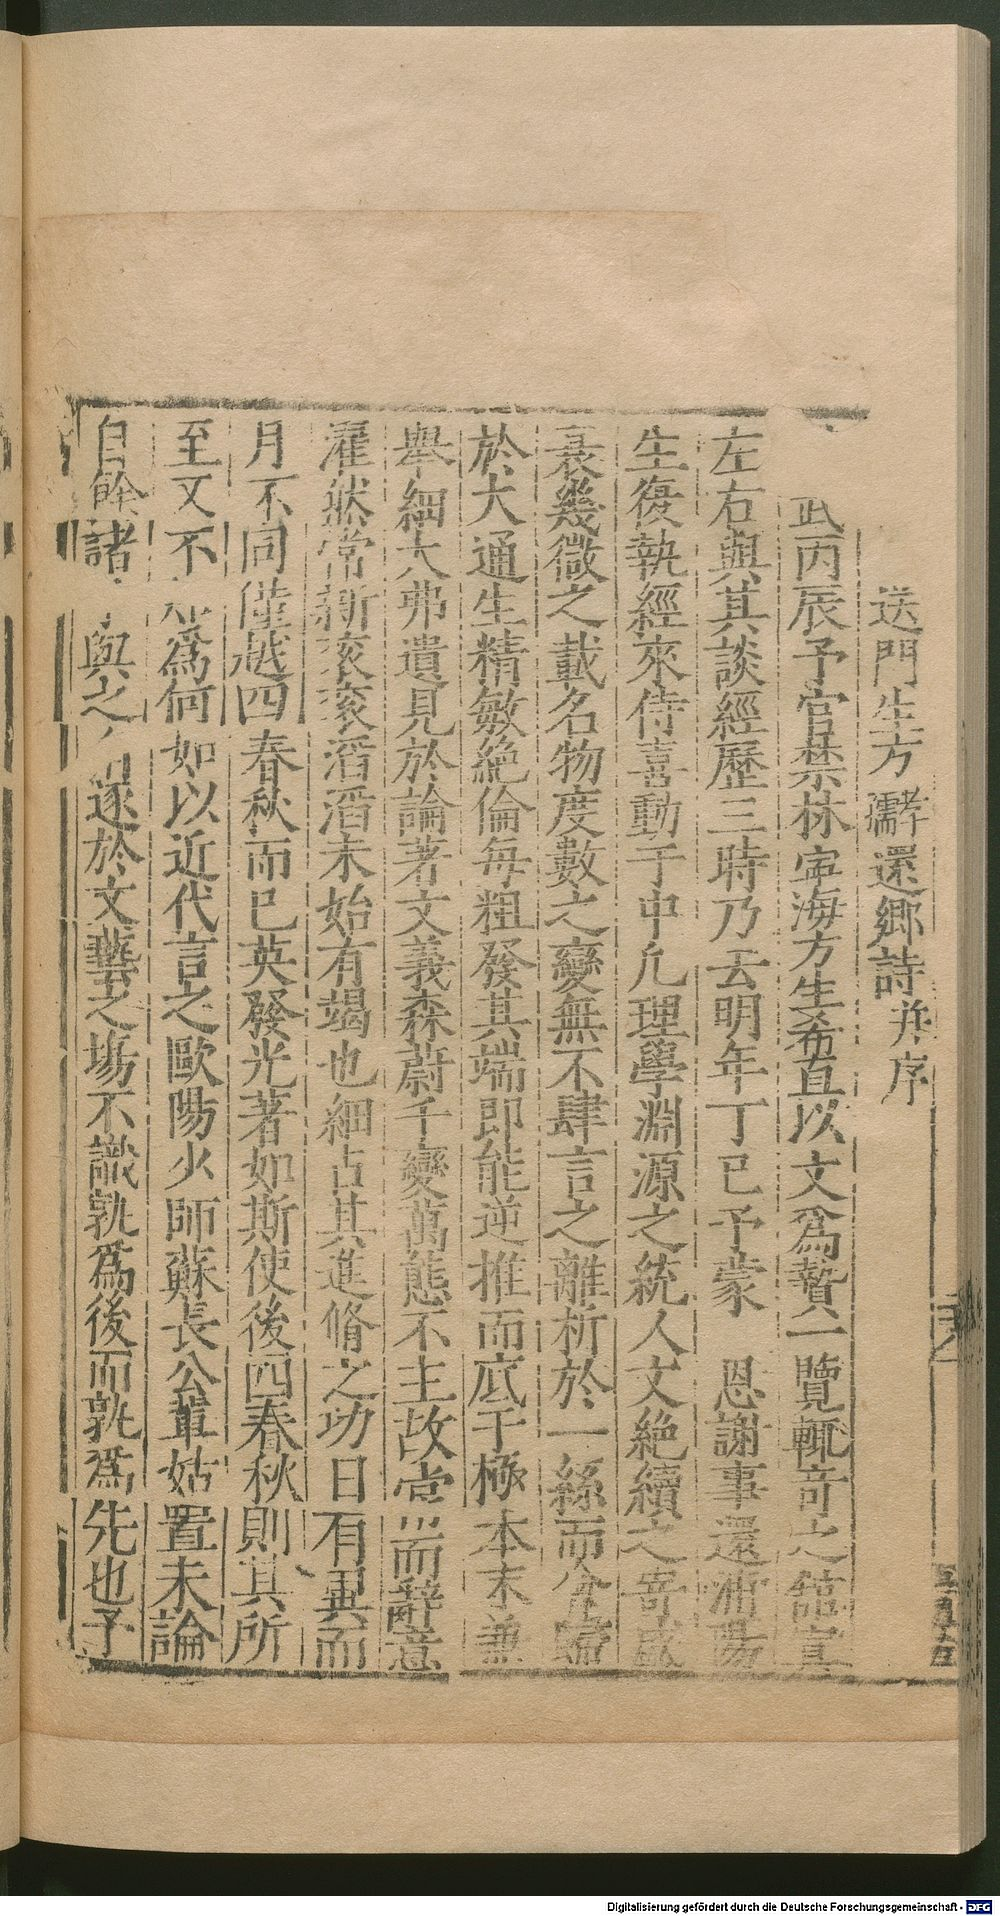 送門生方孝孺還鄉詩并序
武丙辰予官禁林寧海方生希直以文為贄一覽輒奇之館寘
左右與其談經歷三時乃去明年丁巳予蒙 恩謝事還浦陽
生復執經來侍喜動于中凡理學淵源之統人文絕續之寄盛
衰幾微之載名物度數之變無不肆言之離析於一絲而會歸
於大通生精敏絕倫每粗發其端即能逆推而底于極本末兼
舉細大弗遺見於論著文義森蔚千變萬態不主故常而辭意
濯然常新滾滾滔滔未始有竭也細占其進脩之功日有異而
月不同僅越四春秋而已英發光著如斯使後四春秋則其所
至又不知為何如以近代言之歐陽少師蘇長公輩姑置未論
自餘諸 與之 逐於文藝之場不識孰為後而孰為先也予
Digitalisierung gefördert durch die Deutsche Forschungsgemeinschaft - DFG